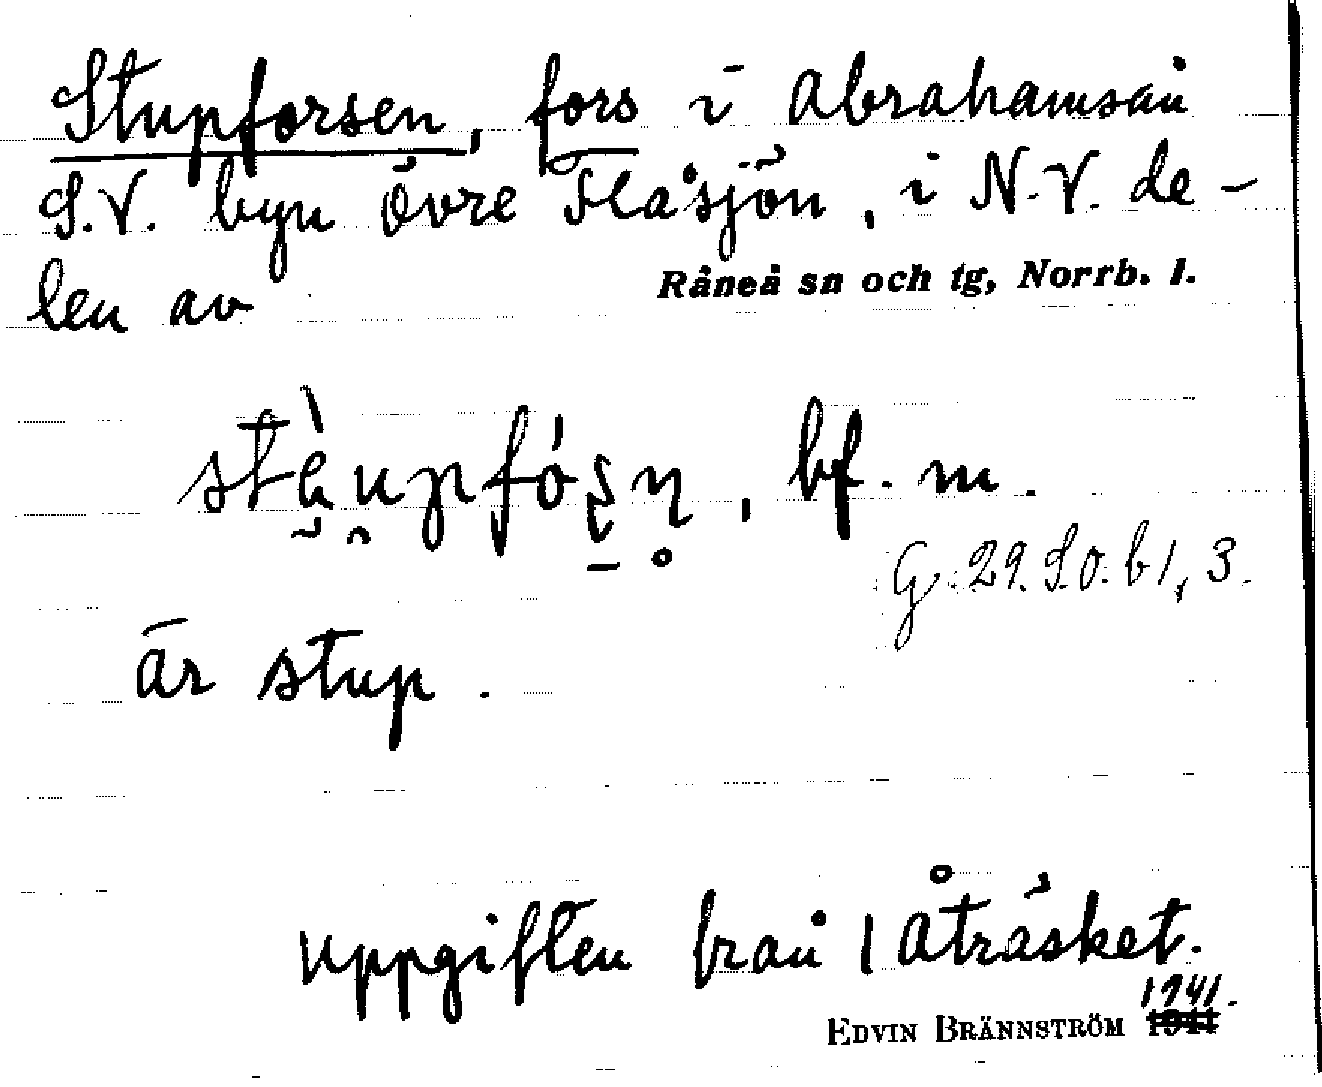 Stupforsen, fors i Abrahamsån
S.V. byn Övre Flåsjön, i N.V. de-
len av Råneå sn och tg, Norrb. l.
bf. m.
G. 29. S.O. b 1, 3.
är stup.
Uppgiften från 1 Åträsket.
1941.
EDVIN BRÄNNSTRÖM 1941